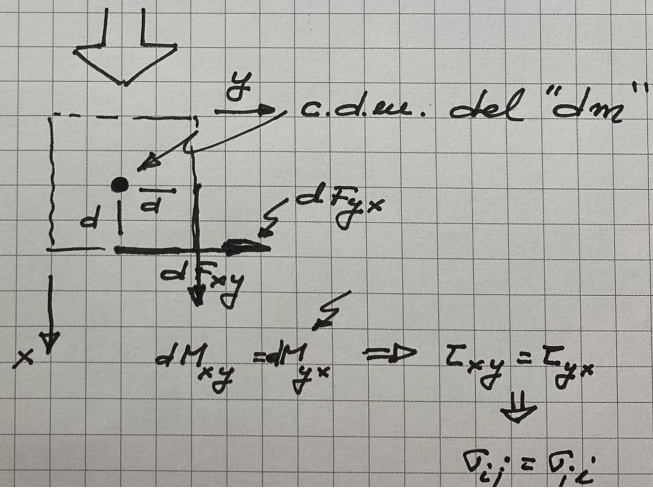 y
c.d.m. del "dm"
d
d dFyx
dFxy
x dMxy = dMyx ⇒ τxy = τyx
⇓
σij = σji